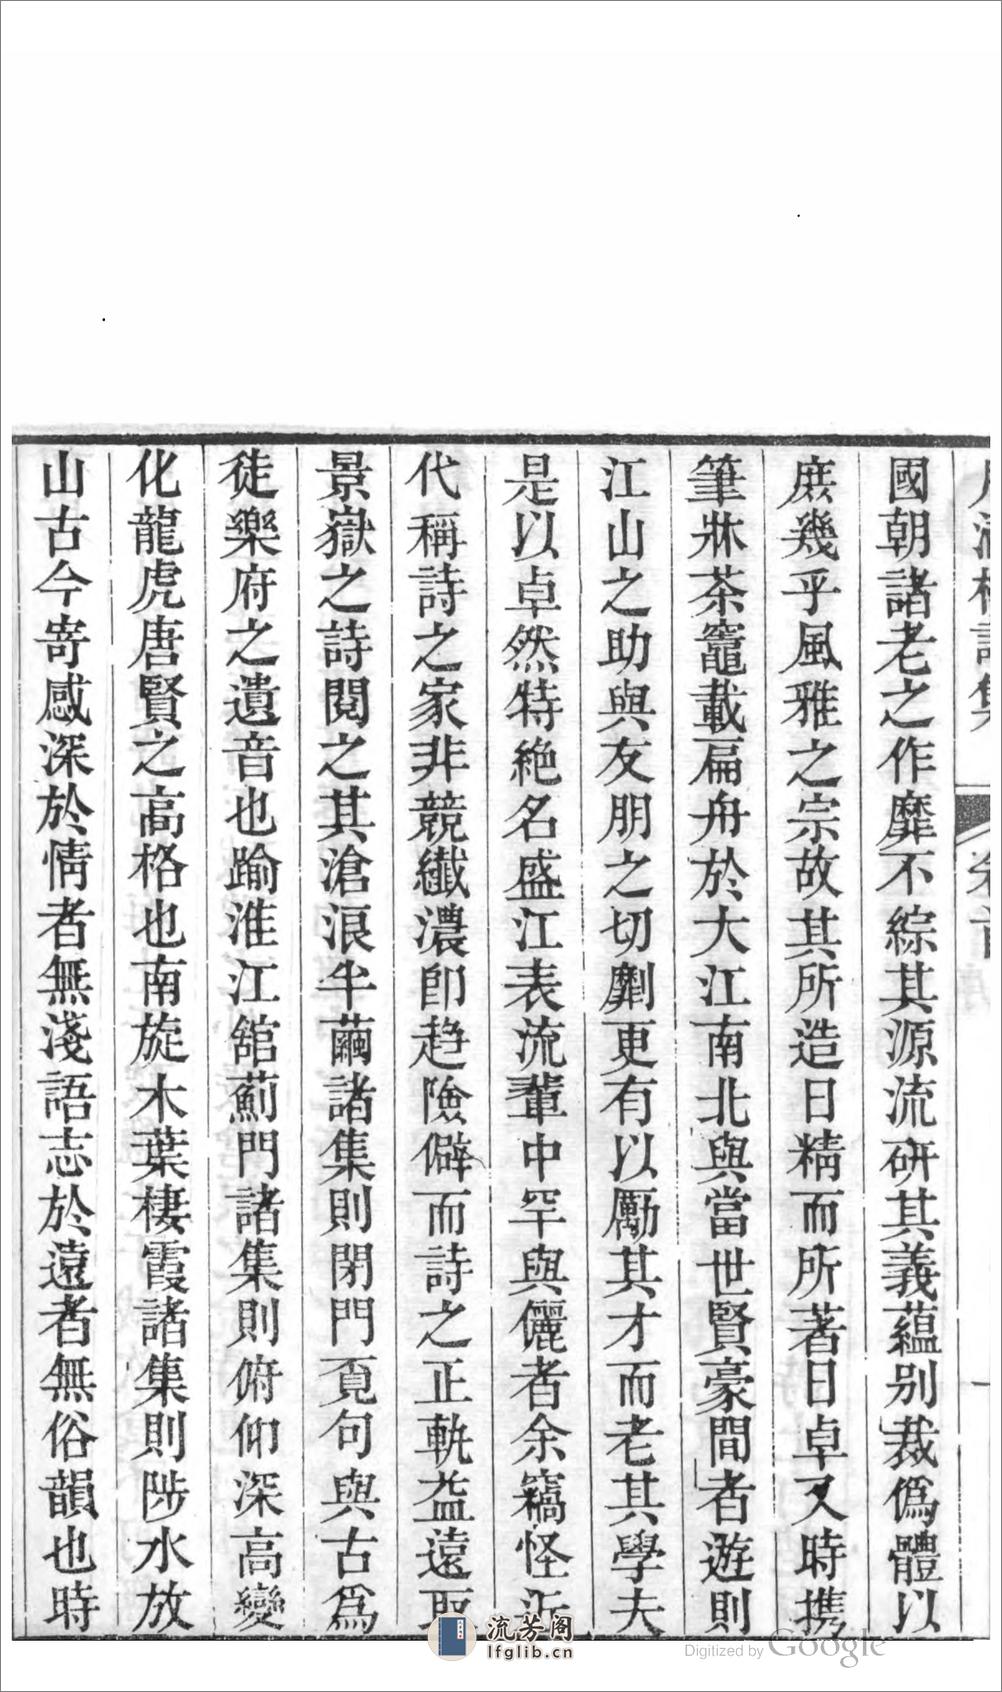 詩集
國朝諸老之作靡不綜其源流研其義蘊別裁僞體以
庶幾乎風雅之宗故其所造日精而所著日卓又時携
筆牀茶竈載扁舟於大江南北與當世賢豪間者遊則
江山之助與友朋之切劘更有以勵其才而老其學夫
是以卓然特絶名盛江表流輩中罕與儷者余竊怪近
代稱詩之家非競纖濃卽趋險僻而詩之正軌盍遠取
景嶽之詩閱之其滄浪半繭諸集則閉門覔句與古爲
徒樂府之遺音也踰淮江舘薊門諸集則俯仰深高變
化龍虎唐賢之高格也南旋木葉棲霞諸集則陟水放
山古今寄感深於情者無淺語志於遠者無俗韻也時
流芳阁
lfglib.cn
Digitized by Google